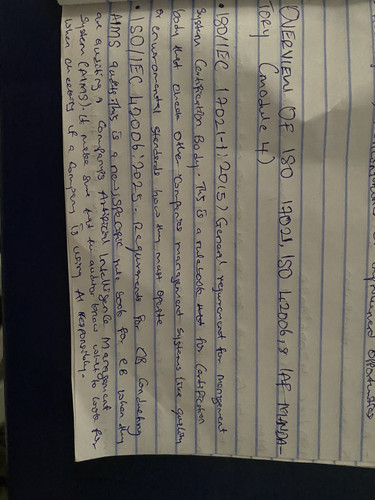 improved opportunities
OVERVIEW OF ISO 17021, ISO 42006, & IAF MANDA-
TORY (module 4)
• ISO/IEC 17021-1:2015) General requirement for management
System Certification Body. This is a rulebook that for Certification
body that check other companies management systems like quality
or environmental standards how they must operate
• ISO/IEC 42006:2025. Requirements for CB Conducting
AIMS audit. This is a new, specific rule book for CB when they
are auditing a company's Artificial Intelligence Management
System (AIMS). It makes sure that the auditors know what to look for
when checking if a company is using AI responsibly.